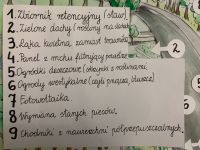 1. Zbiornik retencyjny (staw).
2. Zielone dachy (rośliny na dachu)
3. Łąka kwietna zamiast trawnika
4. Panel z mchu filtrujący
5. Ogródki deszczowe (skrzynki z roślinami)
6. Ogrody wertykalne (czyli pnącza, bluszcz)
7. Fotowoltaika
8. Wymiana starych pieców.
9. Chodniki z nawierzchni półprzepuszczalnych.
2